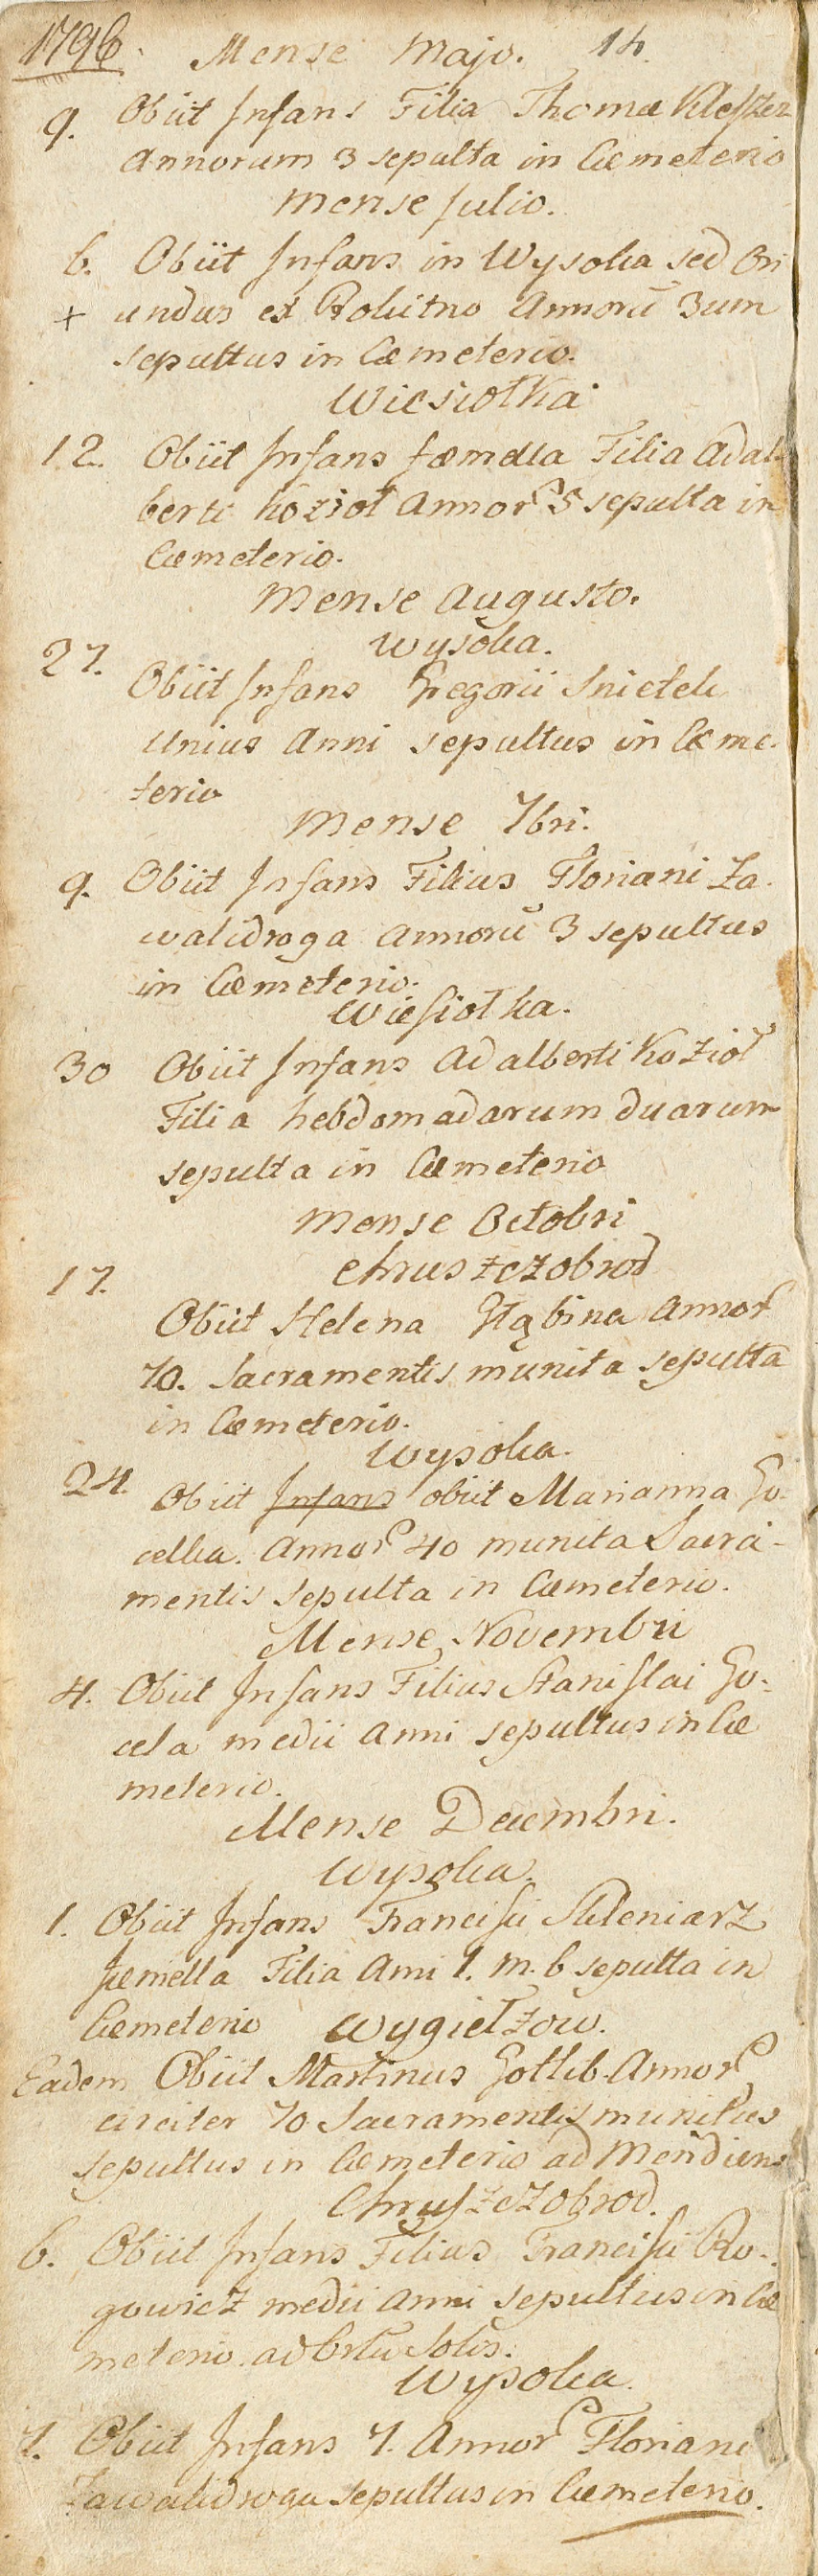 1796. Mense Majo. 14.
9. Obiit Infans Filia Thomæ
Annorum 3 sepulta in Cæmeterio
Mense Julio.
6. Obiit Infans in Wysoka sed Ori
+ undus ex Rokitno Annorū 3um
sepultus in Cæmeterio.
Wiesiołka
12. Obiit Infans fæmella Filia Adal-
berti Kozioł Annor 5 sepulta in
Cæmeterio.
Mense Augusto.
Wysoka.
27. Obiit Infans Gregorii Snietek
unius Anni sepultus in Cæme-
terio
Mense 7bri.
9. Obiit Infans Filius Floriani Za-
walidroga Annorū 3 sepultus
in Cæmeterio.
Wiesiołka.
30 Obiit Infans Adalberti Kozioł
Filia hebdomadarum duarum
sepulta in Cæmeterio
Mense Octobri
Chruszczobrod
17.
Obiit Helena Głąbina Annor
70. Sacramentis munita sepulta
in Cæmeterio.
Wysoka.
24. Obiit Infans obiit Marianna Go-
celka. Annor 40 munita Sacra-
mentis sepulta in Cæmeterio.
Mense Novembri
4. Obiit Infans Filius Stanislai Go-
cela medii Anni sepultus in Cæ
meterio.
Mense Decembri.
Wysoka.
1. Obiit Infans Francisci Skleniarz
fæmella Filia Anni 1. m. 6 sepulta in
Cæmeterio Wygiełzow.
Eadem Obiit Martinus Gotlib Annor
circiter 70 Sacramentis munitus
sepultus in Cæmeterio ad Meridiem
Chruszczobrod.
6. Obiit Infans Filius Francisci Ro-
gowicz medii Anni sepultus in Cæ
meterio. ad Ortū Solis.
Wysoka.
7. Obiit Infans 7. Annor Floriani
Zawalidroga sepultus in Cæmeterio.